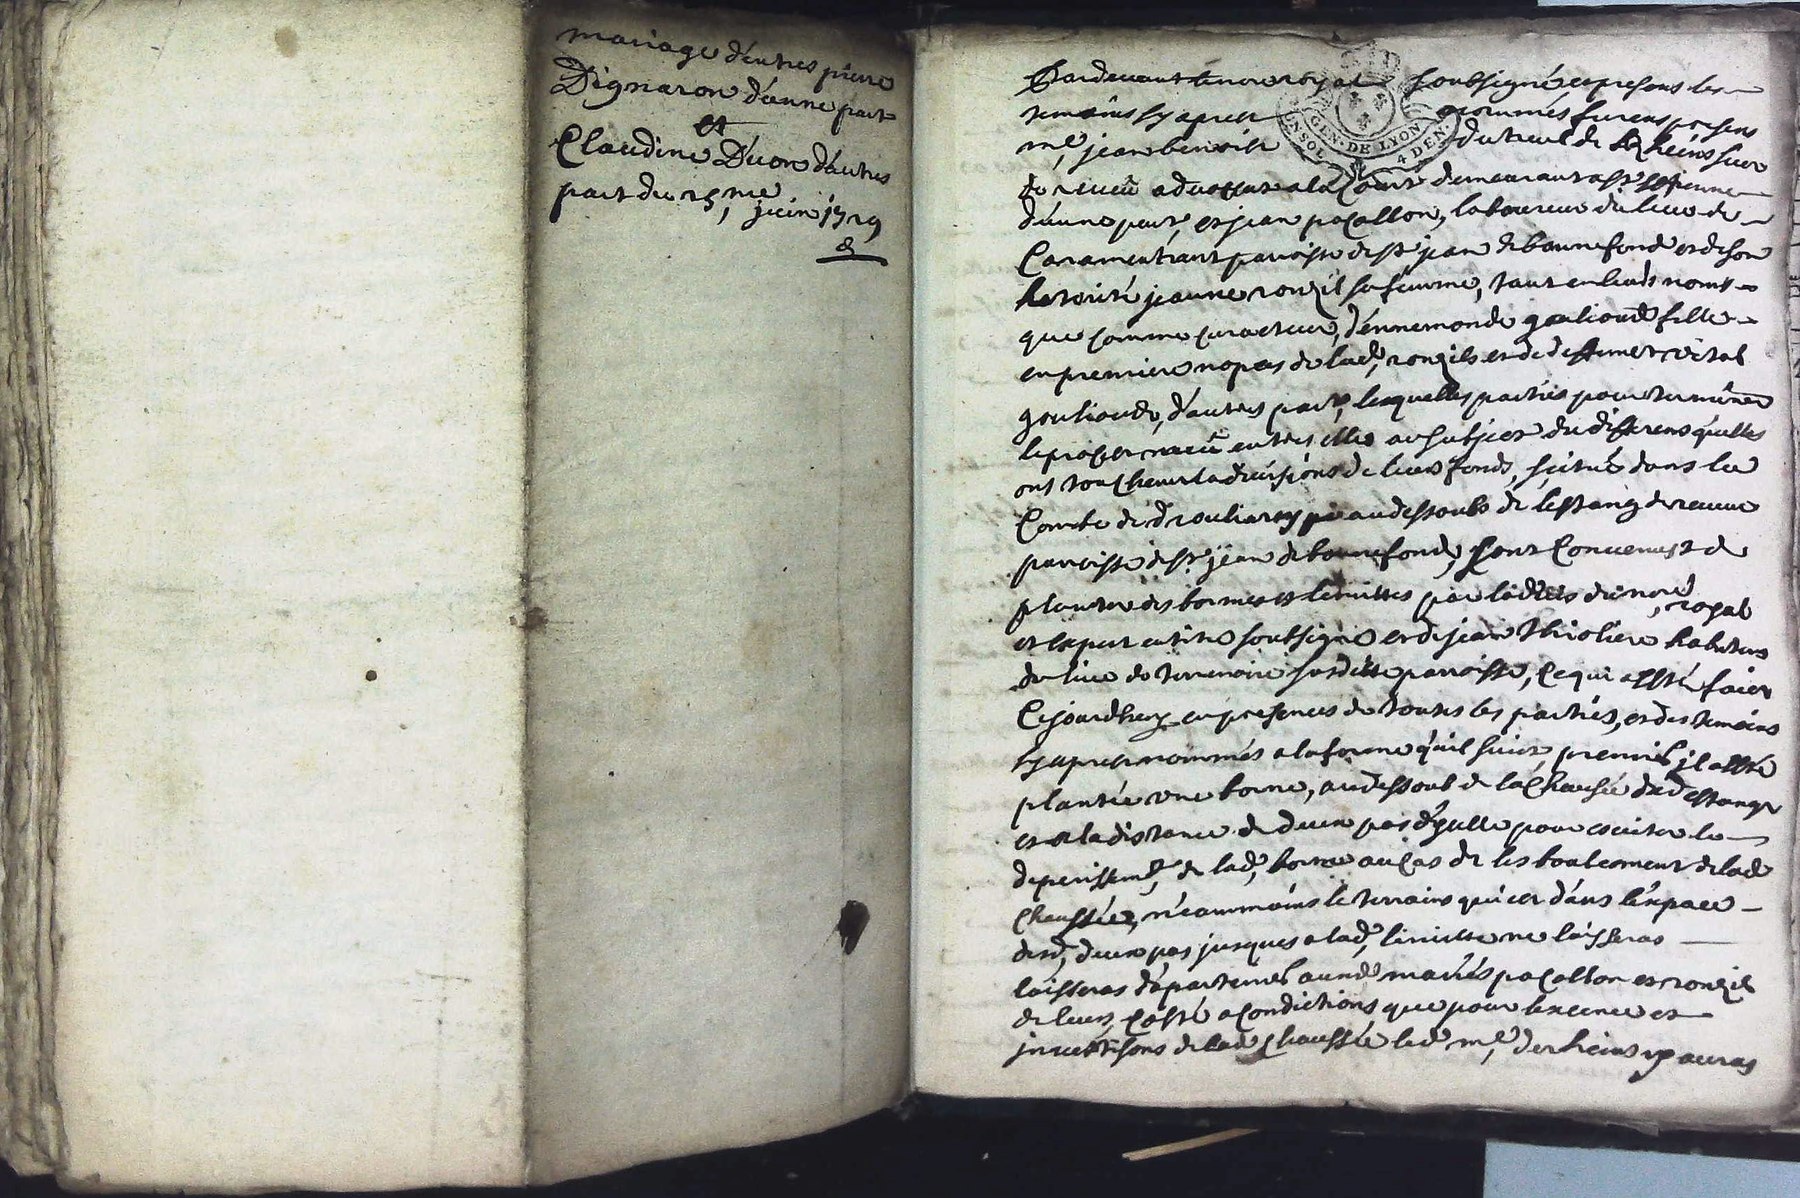 mariage d'entres pierre
Dignaron d'unne part
et
Claudine Duon d'autres
part du 25me juin 1729
Pardevant le no.re royal soubsigné et presens les
temoins sy apres nommés furens presens
me, jean benoist dutreul de Rheins sieur
de reveu advocat a la Court demeurant a st estienne
d'unne part, et jean pacallon, laboureur du lieu de
Canamentrant parroisse de st jean de bonnefond et de son
hotorité jeanne ronzil sa femme, tant en leurs noms
que comme curacteur, d'ennemonde gouliond fille
en premiere nopces de lad, ronzils et de deffunct vital
gouliond, d'autres part, lesquelles parties pour terminer
le proces naeu entres elles au subject du differens quelles
ont touchant la divisions de leurs fonds, scitué dans la
Combe de au dessoubs de l'estang de reveu
parroisse de st jean de bonnefond, sont Convenust de
planter des bornes et limittes par l'advis du nore, royal
et expert en titre soubsigné et de jean Thioliere habitans
du lieu de terrenoire susditte parroisse, ce qui a esté faict
Cejourdhuy en presences de toutes les parties, et des temoins
sy apres nommés a la forme quil suict, premiert il a esté
plantée une borne, au dessoub de la Chausée dud estangt
et a la distance de deux pas d'yselle pour esviter le
deperissemt, de lad, borne au Cas de les boulement de lad
Chaussée, neammoins le terrains qui est dans lespace
desd, deux pas jusques a lad, limitte ne laisseras
laisseras d'apartenir ausds mariés pacallon et ronzil
de leurs Costé a Condictions que pour lexence et
de lad Chaussée led me, de rheins y auras
GEN. DE LYON
4 DEN.